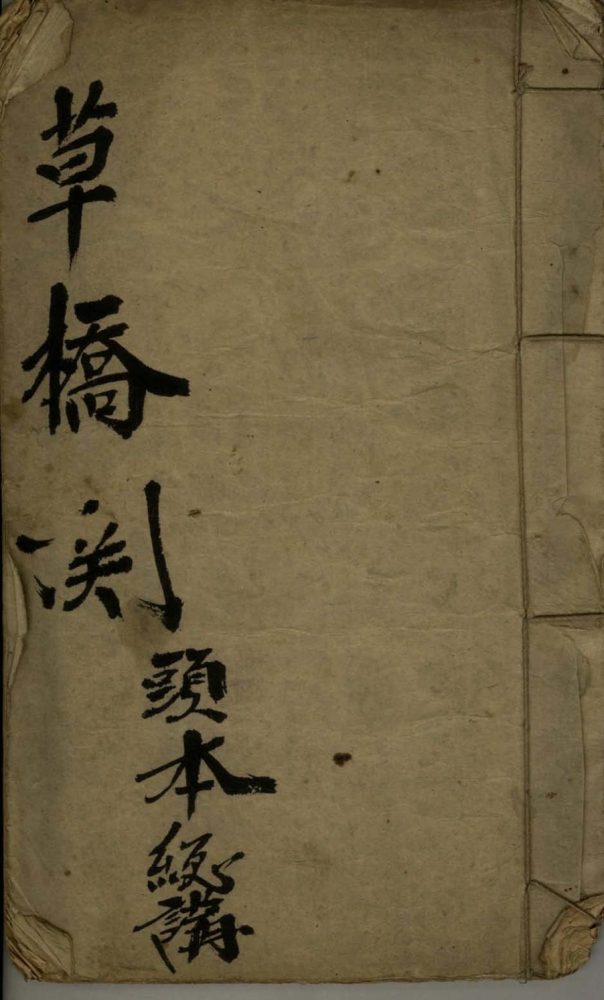 草橋関
頭本總講